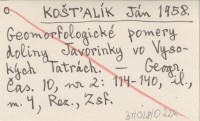 KOŠT'ALÍK Ján 1958.
Geomorfologické pomery
doliny Javorinky vo Vyso-
kých Tatrách. — Geogr.
Čas. 10, nr 2: 114-140, il.,
m. 4, Roz., Zsf.